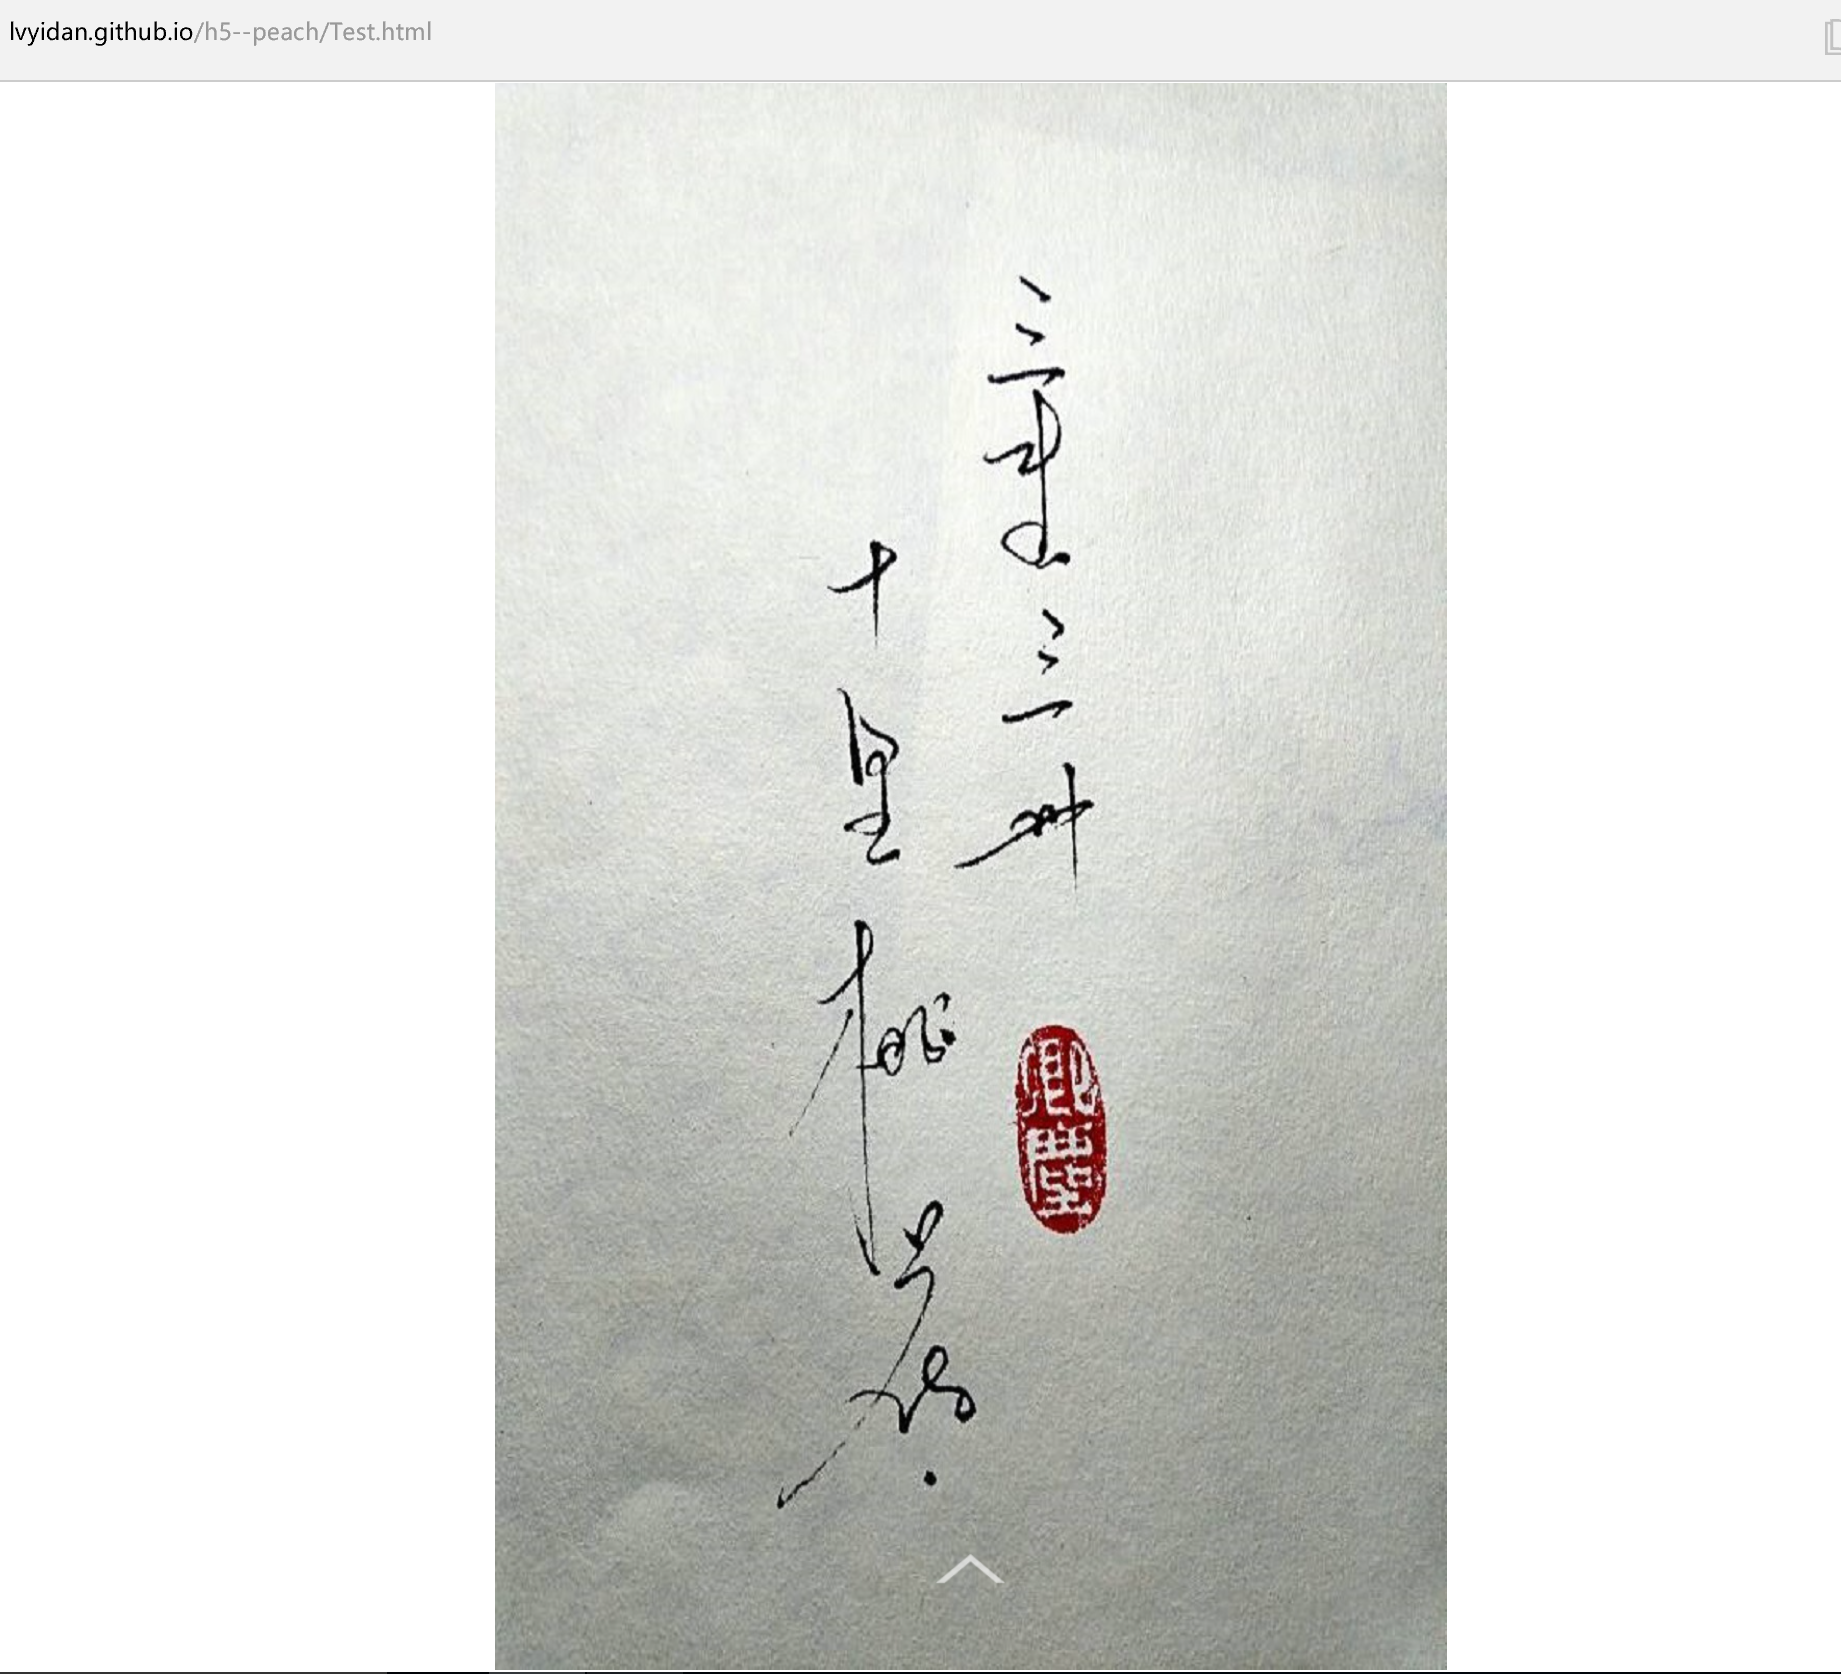 lvyidan.github.io/h5--peach/Test.html
三生三世
十里桃花